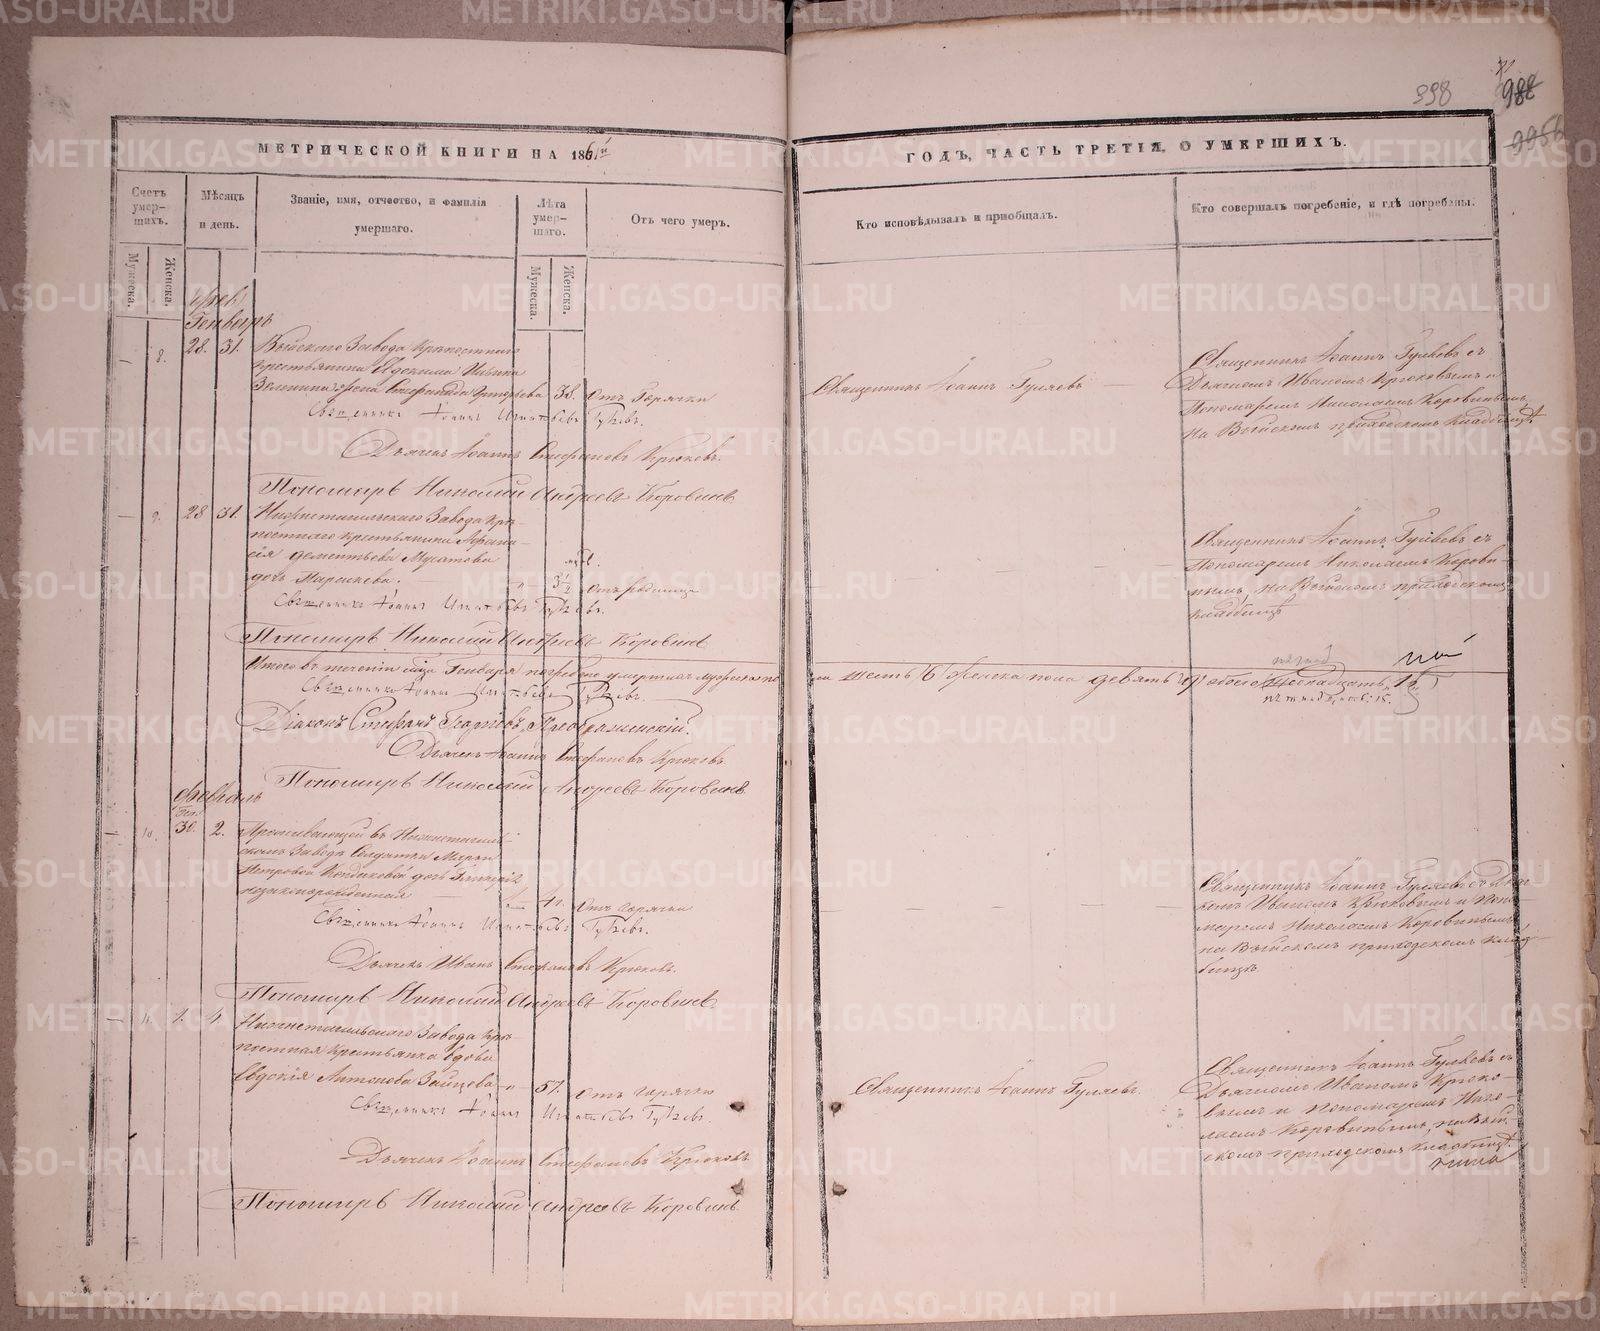 398
988
995б
МЕТРИЧЕСКОЙ КНИГИ НА 1861й
ГОДЪ, ЧАСТЬ ТРЕТІЯ, О УМЕРШИХЪ.
Счетъ умер- шихъ.
Мѣсяцъ и день.
Званіе, имя, отчество, и фамилія умершаго.
Лѣта умер- шаго.
Отъ чего умеръ.
Кто исповѣдывалъ и пріобщалъ.
Кто совершалъ погребеніе, и гдѣ погребены.
Мужеска.
Женска.
Мужеска.
Женска.
Генварь
8. 28. 31. Выйскаго Завода Крѣпостнаго
крестьянина Ильина
жена Григорьева 38. Отъ Горячки
Священникъ Іоаннъ Гуляевъ
Священникъ Іоаннъ Гуляевъ съ
Дьячкомъ Иваномъ Крюковымъ и
Пономаремъ Николаемъ Коровинымъ,
на Выйскомъ приходскомъ кладбищѣ
Священникъ Іоаннъ Игнатьевъ Гуляевъ.
Дьячекъ Іоаннъ Стефановъ Крюковъ.
Пономарь Николай Андреевъ Коровинъ
9. 28 31. Нижнетагильскаго Завода Крѣ-
постнаго Крестьянина Афана-
сія Дементьева Мусатова
дочь Параскева. 3½ Отъ родимца
Священникъ Іоаннъ Гуляевъ съ
Пономаремъ Николаемъ Корови-
нымъ, на Выйскомъ приходскомъ
кладбищѣ
Священникъ Іоаннъ Игнатьевъ Гуляевъ.
Пономарь Николай Андреевъ Коровинъ
Итого въ теченіи Генваря погребено умершихъ мужеска по- ла шесть 6 женска пола девять 9, а обоего
Священникъ Іоаннъ Игнатьевъ Гуляевъ.
Діаконъ Стефанъ Георгіевъ Преображенскій.
Дьячекъ Іоаннъ Стефановъ Крюковъ.
Пономарь Николай Андреевъ Коровинъ
Февраль
Ген.
10. 30. 2. Проживающей въ Нижнетагиль-
скомъ Заводѣ Солдатки Марьи
Петровой дочь
незаконорожденная Отъ Горячки
Священникъ Іоаннъ Гуляевъ съ Дьяч-
комъ Иваномъ Крюковымъ и Поно-
маремъ Николаемъ Коровинымъ,
на Выйскомъ приходскомъ клад-
бищѣ.
Священникъ Іоаннъ Игнатьевъ Гуляевъ.
Дьячекъ Иванъ Стефановъ Крюковъ.
Пономарь Николай Андреевъ Коровинъ
11. 1. 4. Нижнетагильскаго Завода Крѣ-
постная Крестьянка вдова
Евдокія Антонова Зайцева 57. Отъ горячки
Священникъ Іоаннъ Гуляевъ.
Священникъ Іоаннъ Гуляевъ съ
Дьячкомъ Иваномъ Крюко-
вымъ и пономаремъ Нико-
лаемъ Коровинымъ, на Вый-
скомъ приходскомъ кладбищѣ.
Священникъ Іоаннъ Игнатьевъ Гуляевъ.
Дьячекъ Іоаннъ Стефановъ Крюковъ
Пономарь Николай Андреевъ Коровинъ
METRIKI.GASO-URAL.RU